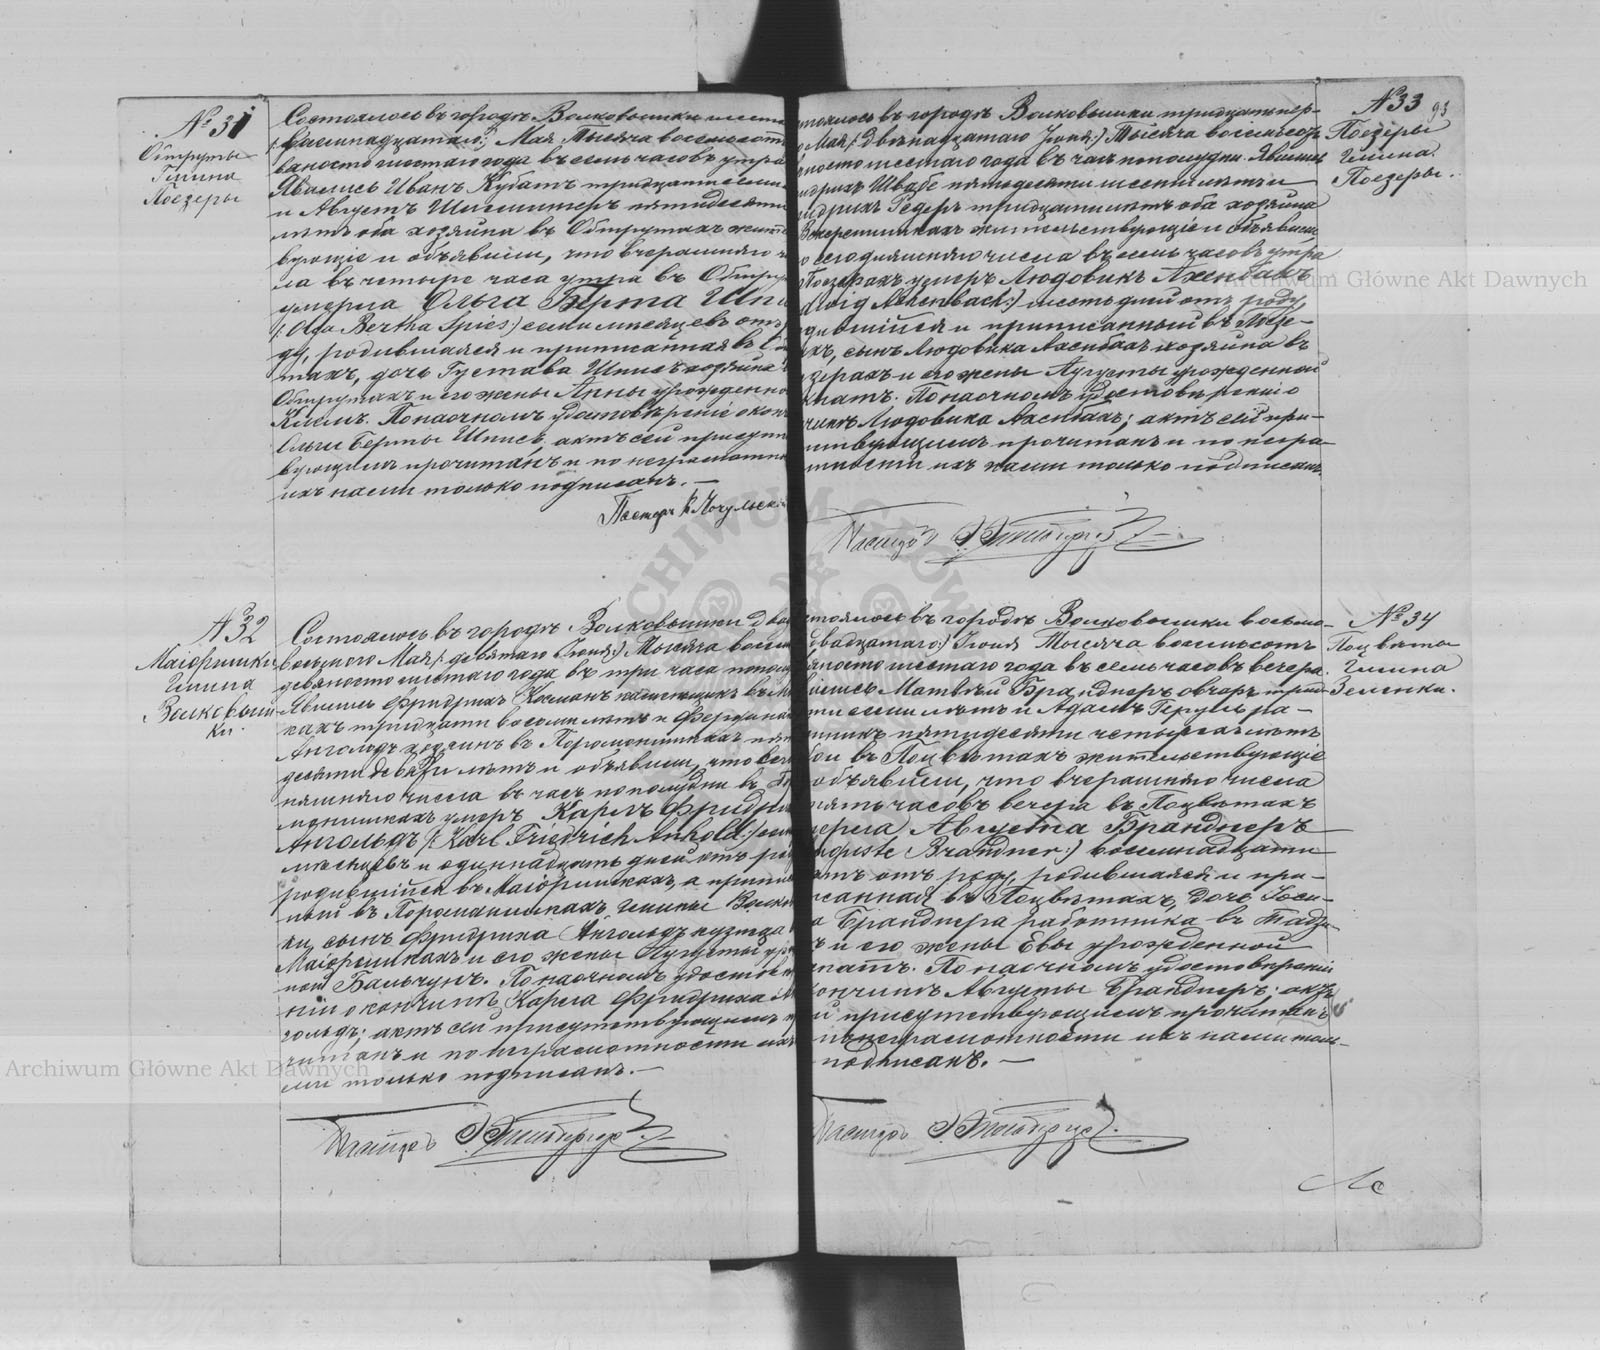 № 31
Обшруты
Гмина
Поезеры
Состоялось въ городѣ Волковышки шест
Восемнадцатаго Мая Тысяча восемьсотъ
вяносто шестаго года въ семь часовъ утра
Явились Иванъ Кубатъ тридцати семи
и Августъ пятидесяти
лѣтъ оба хозяина въ Обшрутахъ жит
вующіе и объявили, что вчерашняго чи
ла въ четыре часа утра въ Обшру
умерла Ольга Берта Шпи
/: Olga Bertha Spies :/ семи мѣсяцевъ отъ
ду, родившаяся и приписанная въ
тахъ, дочь Густава Шписъ хозяина
Обшрутахъ и его жены Анны урожденно
Климъ. По наочномъ удостовѣреніе о конч
Ольги Берты Шписъ, актъ сей присут
вующимъ прочитанъ и по неграмотно
ихъ нами только подписанъ. —
Пасторъ К. Мочульскі
№ 32
Маіоришки
Гмина
Волковыш-
ки.
Состоялось въ городѣ Волковышки два
восьмого Мая /: девятаго Іюня :/ Тысяча восем
девяносто шестаго года въ три часа попол
Явились Фридрихъ въ
кахъ тридцати восьми лѣтъ и Фердина
Анголадъ хозяинъ въ
десяти девяти лѣтъ и объявили, что сего
няшняго числа въ часъ пополудни въ
умеръ Карлъ Фридри
Анголадъ /: Karl Friedrich Anhold :/ сем
мѣсяцевъ и одиннадцать дней отъ ро
родившійся въ Маіоришкахъ, а припис
ный въ гмины Волко
ки, сынъ Фридриха Анголадъ кузнеца
Маіоришкахъ и его жены Аугусты уро
ной Бальчунъ. По наочномъ удостов
ніи о кончинѣ Карла Фридриха А
гольдъ; актъ сей присутствующимъ п
читанъ и по неграмотности ихъ
ми только подписанъ. —
Пасторъ
93
№ 33
Поезеры
Гмина
Поезеры.
тоялось въ городѣ Волковышки тридцать пер-
Мая /: двѣнадцатаго Іюня :/ Тысяча восемьсотъ
вяносто шестаго года въ часъ пополудни. Явились
идрихъ Швабе пятидесяти шести лѣтъ и
идрихъ Редеръ тридцати лѣтъ оба хозяина
жительствующіе и объявили,
о сегодняшняго числа въ семь часовъ утра
Поезерахъ умеръ Людовикъ Ахенбахъ
dwig Achenbach :/ шесть дней отъ роду,
дившійся и приписанный въ Поезе-
хъ, сынъ Людовика Ахенбахъ хозяина въ
езерахъ и его жены Аугусты урожденной
По наочномъ удостовѣреніе о
чинѣ Людовика Ахенбахъ; актъ сей при-
тствующимъ прочитанъ и по негра-
мотности ихъ нами только подписанъ.
Пасторъ
№ 34
Поцвѣты
Гмина
Зеленка.
стоялось въ городѣ Волковышки восьмо-
двадцатаго :/ Іюня Тысяча восемьсотъ
вяносто шестаго года въ семь часовъ вечера.
вились Матвѣй Бранднеръ овчаръ трид-
ти семи лѣтъ и Адамъ Геруль ра-
отникъ пятидесяти четырехъ лѣтъ
ба въ Поцвѣтахъ жительствующіе
объявили, что вчерашняго числа
пять часовъ вечера въ Поцвѣтахъ
мерла Августа Бранднеръ
uguste Brandner :/ восемнадцати
лѣтъ отъ роду, родившаяся и при-
исанная въ Поцвѣтахъ, дочь Іоси-
а Бранднера работника въ
ъ и его жены Евы урожденной
По наочномъ удостовѣреніи
кончинѣ Августы Бранднеръ; актъ
й присутствующимъ прочитанъ
по неграмотности ихъ нами толь-
подписанъ. —
Пасторъ
Archiwum Główne Akt Dawnych
Archiwum Główne Akt Dawnych